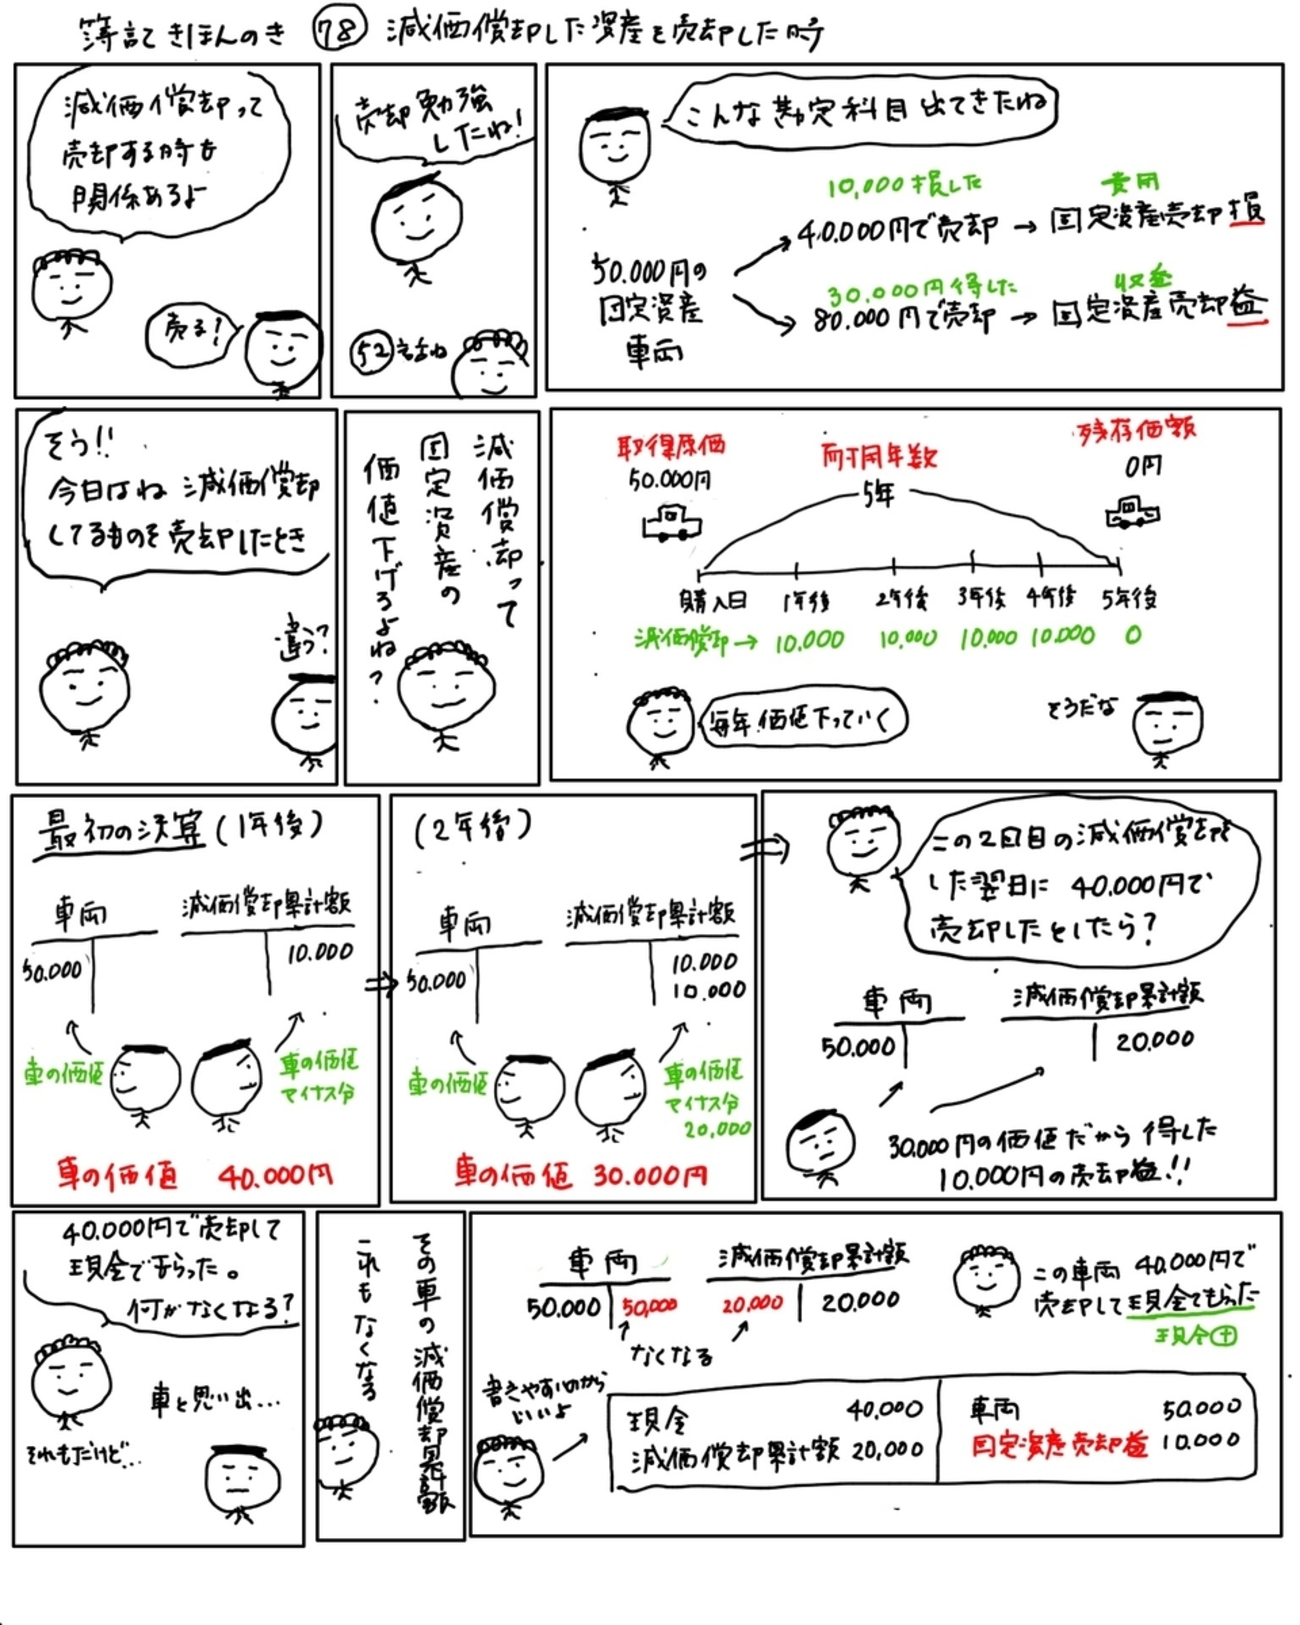 簿記きほんのき 78 減価償却した資産を売却した時
減価償却って
売却する時も
関係あるよ
売る!
売却勉強
したね!
52を見てね
こんな勘定科目出てきたね
10,000損した
費用
40.000円で売却 → 固定資産売却損
50.000円の
固定資産
車両
30.000円得した
収益
80.000円で売却 → 固定資産売却益
そう!!
今日はね 減価償却
してるものを売却したとき
違う?
減価償却って
固定資産の
価値下げるよね?
取得原価
50.000円
耐用年数
5年
残存価額
0円
購入日 1年後 2年後 3年後 4年後 5年後
減価償却→ 10.000 10,000 10.000 10.000 0
毎年価値下っていく
そうだな
最初の決算(1年後)
車両 減価償却累計額
50.000 10.000
車の価値
車の価値
マイナス分
車の価値 40.000円
(2年後)
車両 減価償却累計額
50.000 10.000
10.000
車の価値
車の価値
マイナス分
20,000
車の価値 30.000円
この2回目の減価償却を
した翌日に 40.000円で
売却したとしたら?
車両 減価償却累計額
50.000 20.000
30.000円の価値だから 得した
10.000円の売却益!!
40.000円で売却して
現金でもらった。
何がなくなる?
車と思い出…
それもだけど…
その車の減価償却累計額
これもなくなる
車両 減価償却累計額
50.000 50,000 20,000 20.000
なくなる
この車両 40.000円で
売却して現金でもらった
現金+
書きやすいのから
でいいよ
現金 40,000 車両 50.000
減価償却累計額 20,000 固定資産売却益 10.000